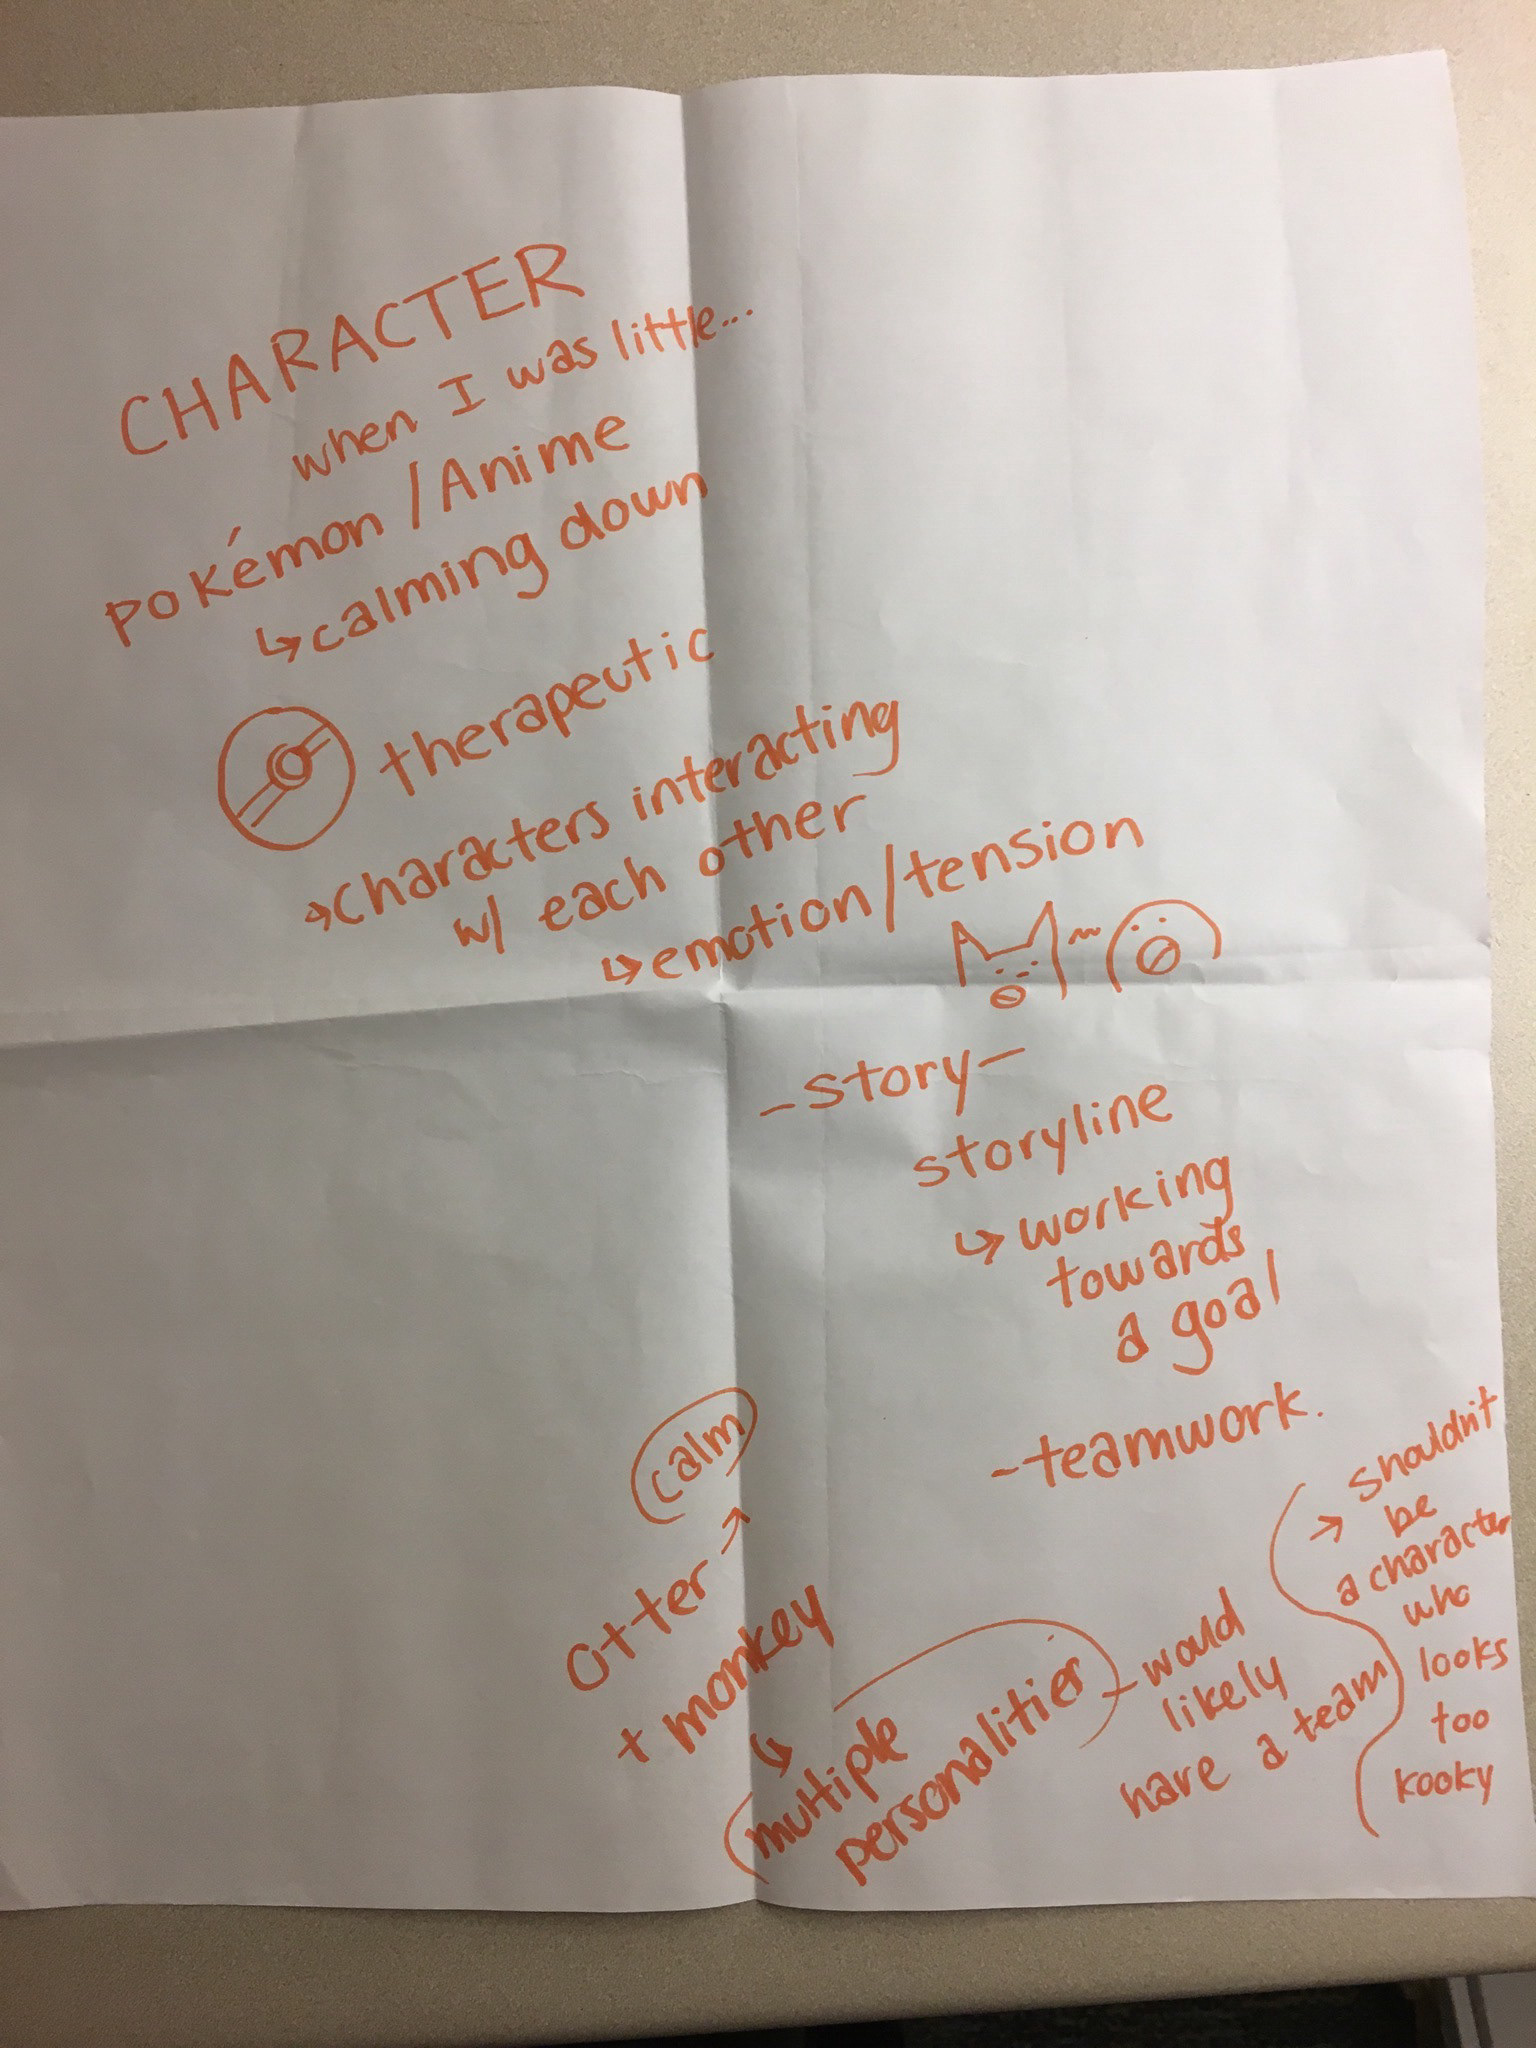 CHARACTER
when I was little...
pokémon / Anime
↳ calming down
therapeutic
→ characters interacting
w/ each other
↳ emotion/tension
- story -
storyline
↳ working
towards
a goal
- teamwork.
calm
otter →
+ monkey
↳ multiple
personalities
- would
likely
have a team
→ shouldn't
be
a character
who
looks
too
kooky